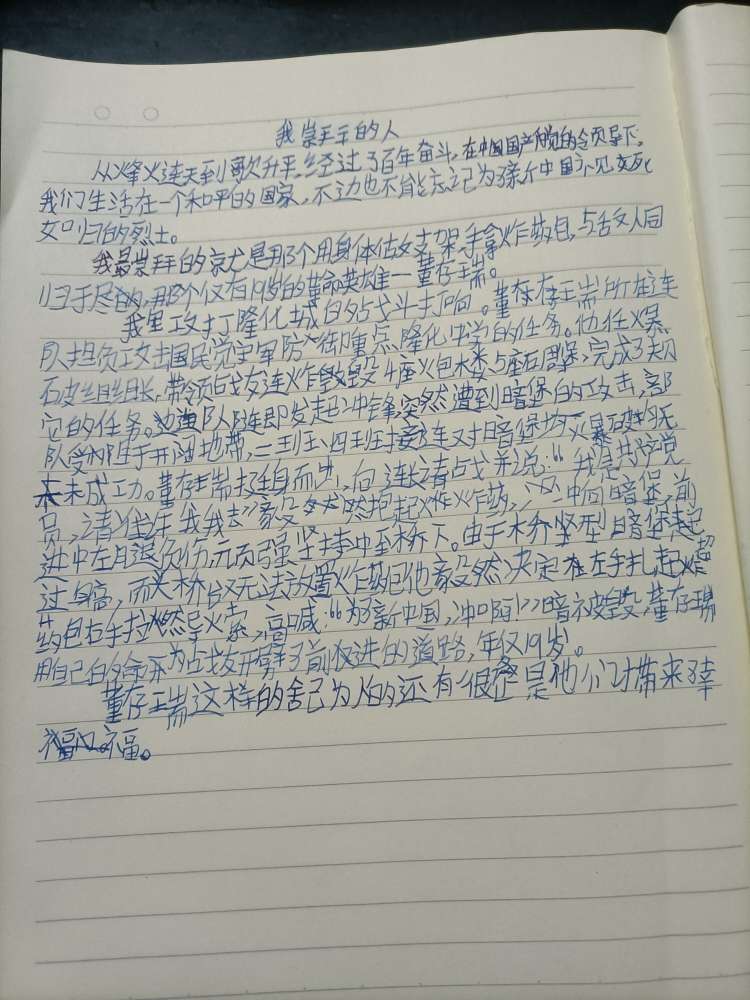 我崇拜的人
从烽火连天到歌欣升平,经过了百年奋斗,在中国国产党的令页导下,
我们生活在一个和平的国家,不边也不能忘记为了新中国
如归的烈士。
我最崇拜的就是用了个用身体做支架手拿炸药包,与敌人同
归于尽的,用那个仅有19岁的革命英雄一董存瑞。
我军攻打隆化城的战斗打响。董存存瑞所在连
队担负攻击国民党军防御重点隆化中学的任务。他任爆
破组组长,带领战友连炸毁4座炮楼5座碉堡,完成了规
它的任务。连队随即发起冲锋,突然遭到暗堡的攻击,部
队受阻于开阔地带,二到、四班接连对暗堡爆破均
未成功。董存瑞挺身而出,向连长请战并说:“我是共产党
员,请准许我去”毅然抱起炸药,冲向暗堡,前
进中左月退负伤,顽强坚持冲至桥下。由于木桥 型暗堡
过身高,而天桥台又无法放置炸药包他毅然决定 左手扎起炸
药包右手拉燃导火索,高喊:“为了新中国,冲啊!”暗被毁,董存瑞
用自己的命为战友开辟了前进的道路,年仅19岁。
董存瑞这样的舍己为人的还有很 是他们对带来了幸
福。